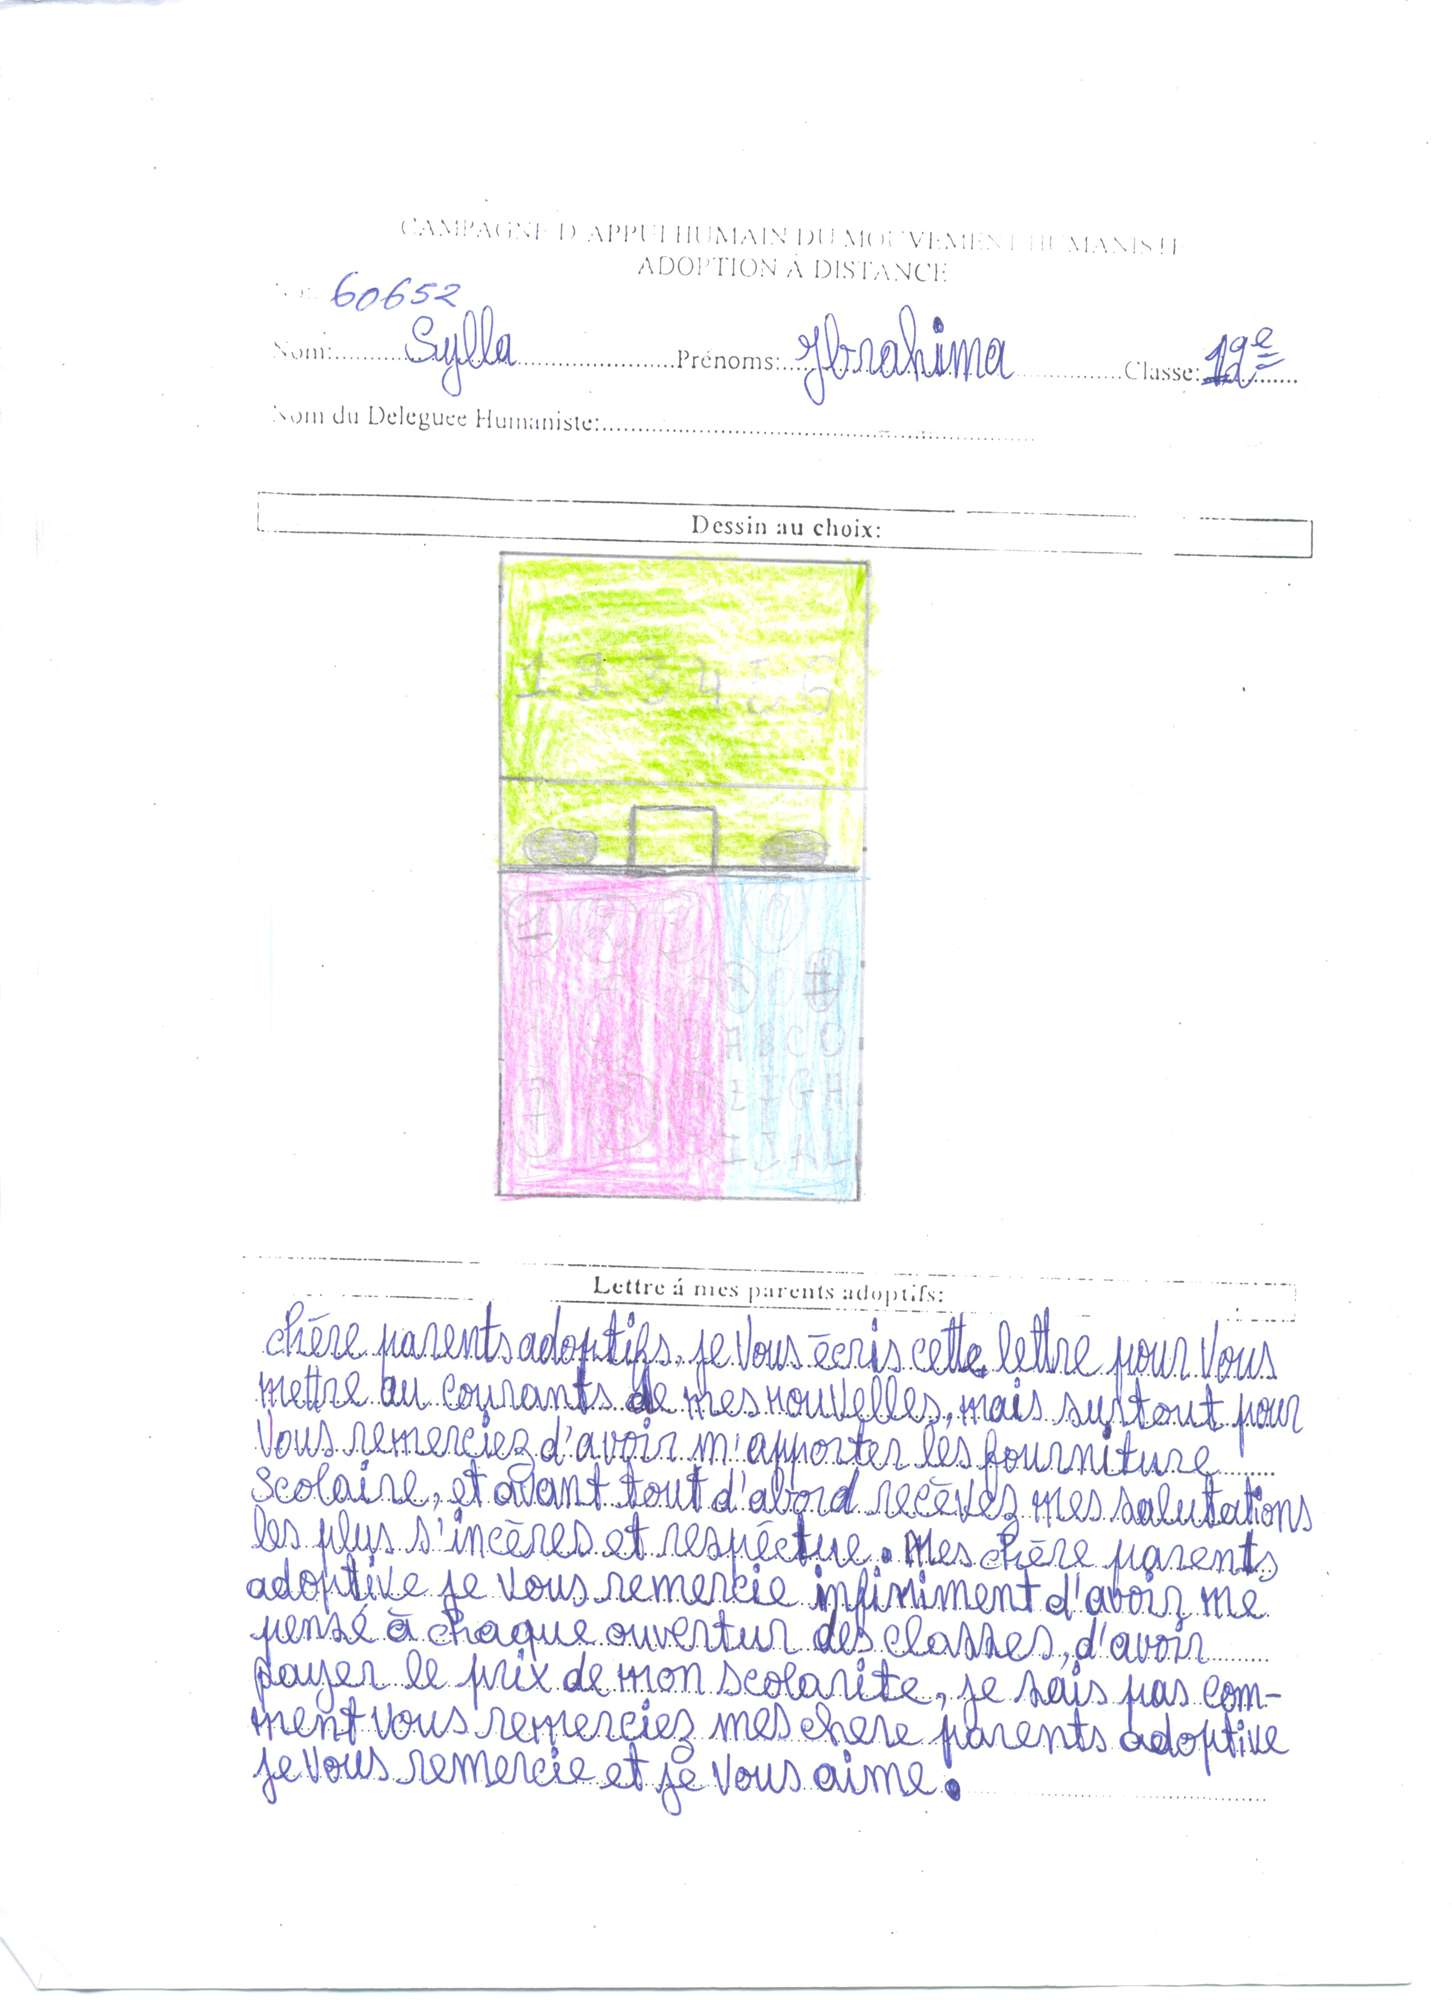 CAMPAGNE D'APPUI HUMAIN DU MOUVEMENT HUMANISTE
ADOPTION Á DISTANCE
60652
Nom: Sylla Prénoms: Ibrahima Classe: 12e
Nom du Deleguee Humaniste:
Dessin au choix:
1 2 3 4 5 5
1 2 3
A B C D
E F G H
I J A L
Lettre á mes parents adoptifs:
chère parents adoptifs, je vous écris cette lettre pour vous
mettre au courants de mes nouvelles, mais surtout pour
vous remerciez d'avoir m'apporter les fourniture
scolaire, et avant tout d'abord recévez mes salutations
les plus s'incères et respéctue. Mes chère parents
adoptive je vous remercie infiniment d'avoir me
pensé à chaque ouvertur des classes, d'avoir
payer le prix de mon scolarite, je sais pas com-
ment vous remerciez mes chere parents adoptive
je vous remercie et je vous aime.